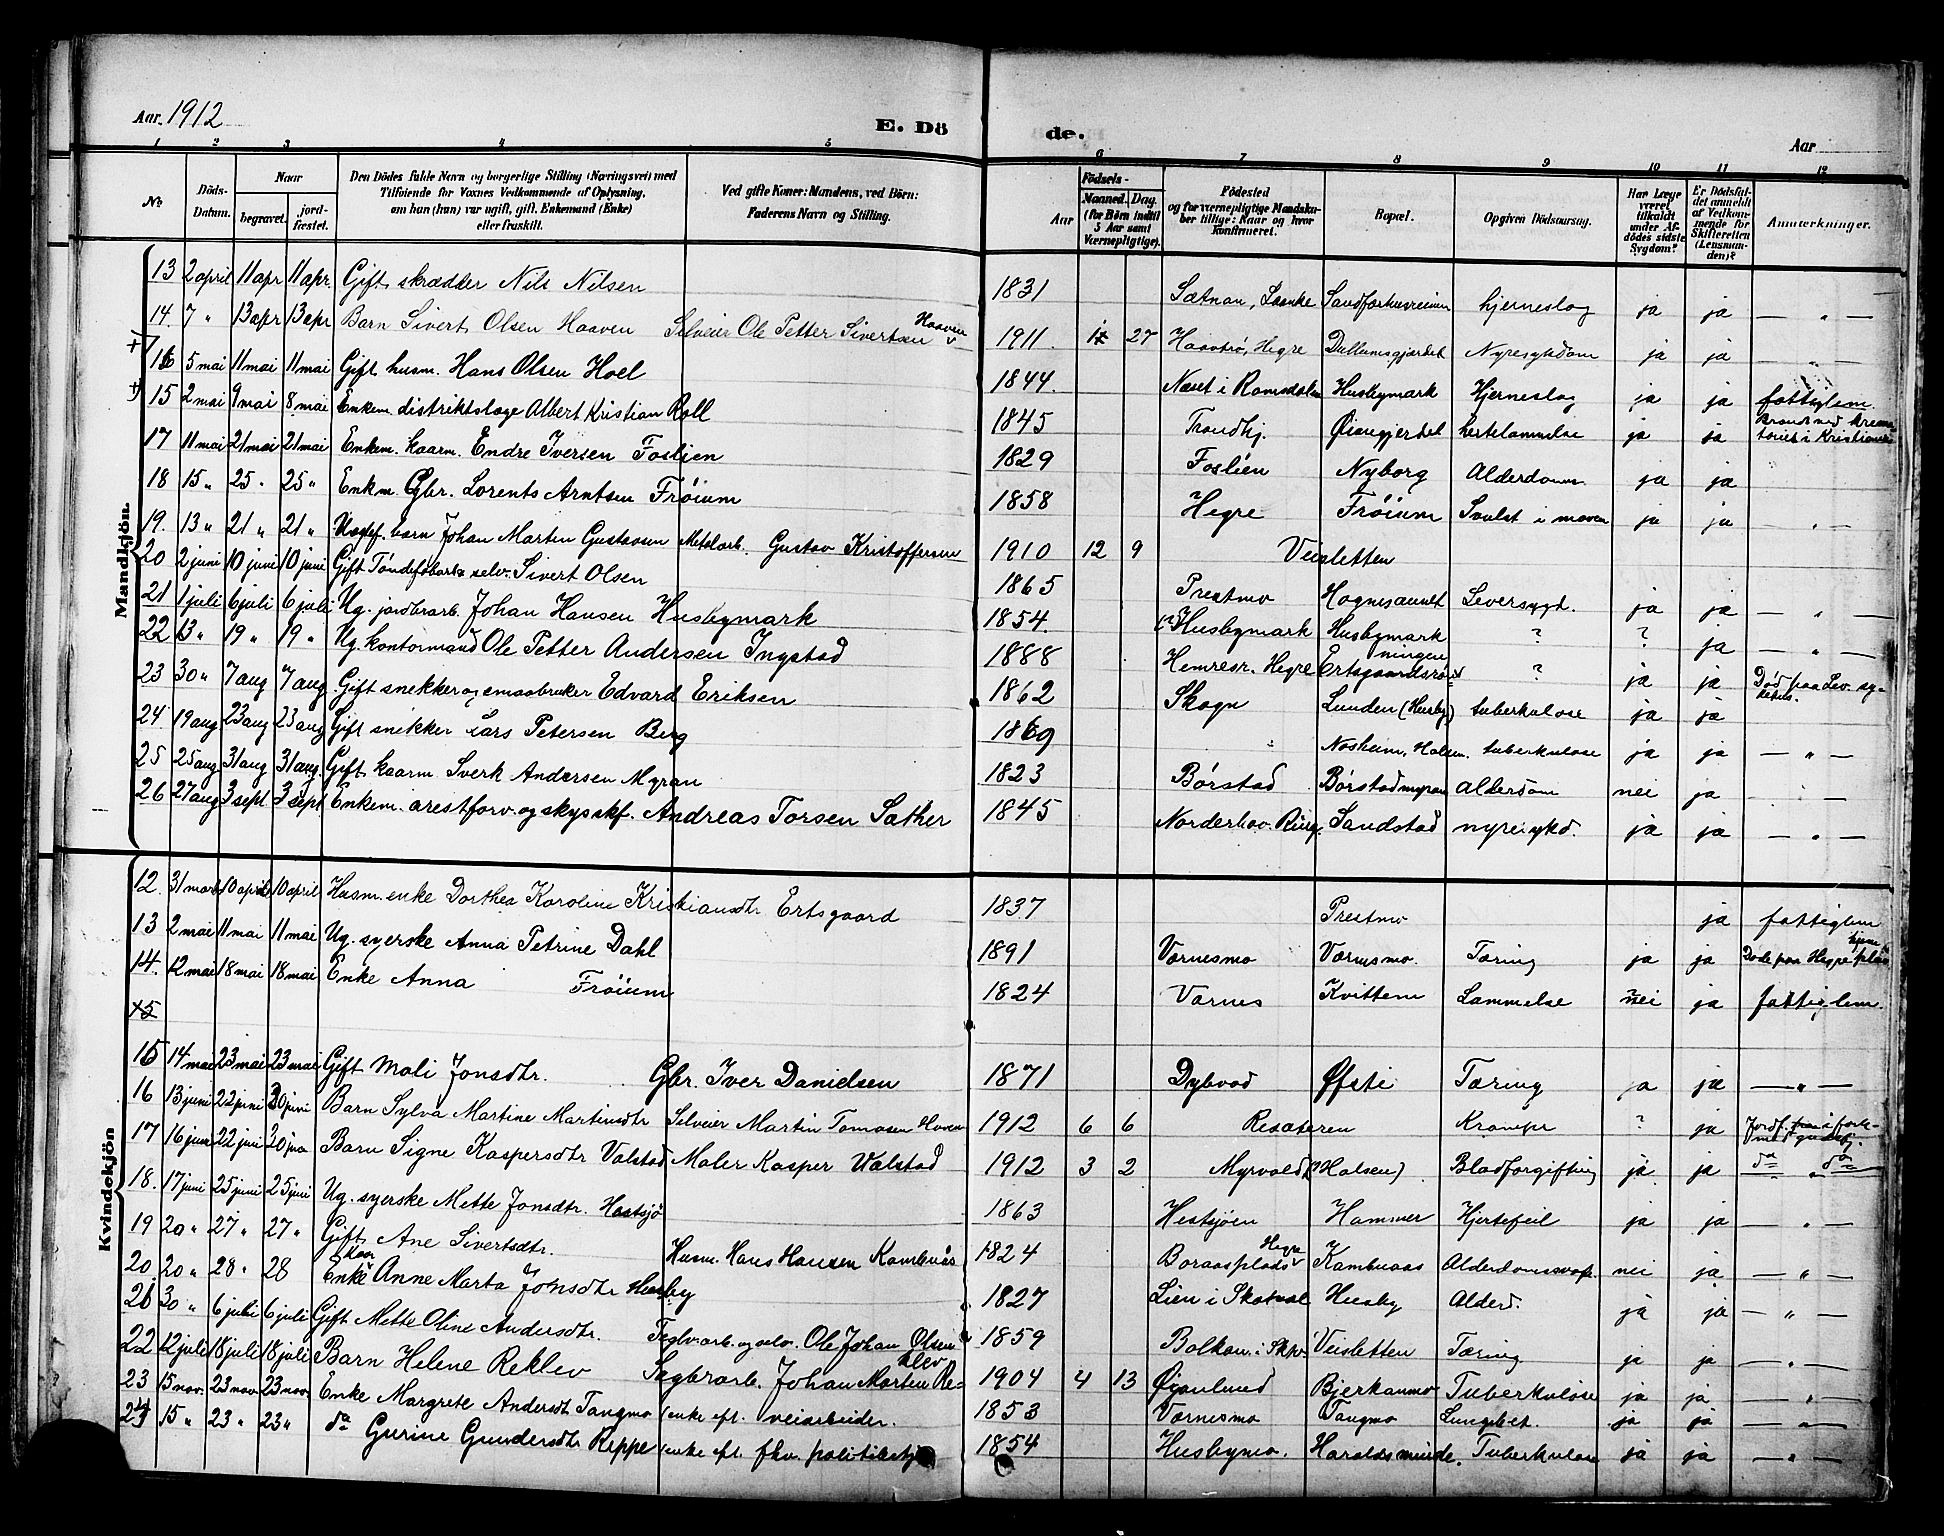 Aar. 1912
E. Dö de.
Aar
1 2 3 4 5 6 7 8 9 10 11 12
№
Döds-Datum.
Naar begravet. jordfæstet.
Den Dödes fulde Navn og borgerlige Stilling (Næringsvei) med Tilføiende for Voxnes Vedkommende af Oplysning, om han (hun) var ugift, gift, Enkemand (Enke) eller fraskilt.
Ved gifte Koner: Mandens, ved Börn: Faderens Navn og Stilling.
Födsels- Aar Maaned. Dag. (for Börn indtil 5 Aar samt Værnepligtige).
Födested og for værnepligtige Mandskaber tillige: Naar og hvor konfirmeret.
Bopæl.
Opgiven Dödsaarsag.
Har Læge været tilkaldt under Afdödes sidste Sygdom?
Er Dödsfaldet anmeldt af Vedkommende for Skifteretten (Lensmanden)?
Anmærkninger.
Mandkjön.
13 2 april 11 apr 11 apr. Gift skrædder Nils Nilsen 1831 Sætnan, Laanke hjerneslag ja ja — " —
14. 7 " 13 apr 13 apr Barn Sivert Olsen Haaven Selveier Ole Petter Sivertsen Haaven 1911. 27 Hegre Nyresykdom ja ja
16 5 mai 11 mai 11 mai Gift husm. Hans Olsen Hoel 1844. Næset i Romsdalen Husbymark Hjerneslag ja ja fattiglem.
15 2 mai 9 mai 8 mai Enkem. distriktslæge Albert Kristian Roll 1845 Trondhj. Øiangjerdet hertelammelse ja ja Brændt ved krematoriet i Kristiania
17 11 mai 21 mai 21 mai Enkem. kaarm. Endre Iversen Foslien 1829 Foslien Nyborg Alderdom ja ja
18 15 " 25 " 25 " Enkm. Gbr. Lorents Arntsen Frøium 1858 Hegre Frøium Svulst i maven ja ja "
19. 13 " 21 " 21 " barn Johan Martin Gustavsen Metalarb. Gustav Kristoffersen 1910 12 9 Veisletten
20 2 juni 10 juni 10 juni Gift selv. Sivert Olsen 1865 Prestmo Leversygd. ja ja — " —
21 1 juli 6 juli 6 juli Ug. jordbrarb. Johan Hansen Husbymark 1854. (?) Husbymark Husbymark ? ? ja — " —
22 13 " 19 " 19 " Ug. kontormand Ole Petter Andersen Ingstad 1888 Hemresr. Hegre ? ja ja Död paa Lev. sykehus.
23 30 " 7 aug 7 aug Gift snekker og smaabruker Edvard Eriksen 1862 Skogn Lunden (Husby) tuberkulose ja ja
24. 19 aug 23 aug 23 aug Gift snekker Lars Petersen Berg 1869 tuberkulose ja ja — " —
25 25 aug 31 aug 31 aug. Gift kaarm Sverk Andersen Myran 1823 Børstad Børstadmyran Alderdom nei ja — " —
26 27 aug 3 sept. 3 sept Enkem. arestforv. og skysskf. Andreas Torsen Sæther 1845 Norderhov. Ring. Sandstad nyresykd. ja ja — " —
Kvindekjön
12. 31 mars 10 april 10 april Husm. enke Dorthea Karoline Kristiansdtr Ertsgaard 1837 Prestmo ja fattiglem
13 2 mai 11 mai 11 mai Ug. syerske Anna Petrine Dahl 1891 Værnesmo Værnesmo. Tæring ja ja Döde paa Hegre pleiehjem
14. 12 mai 18 mai 18 mai Enke Anna Frøium 1824 Værnes Kvittem Lammelse nei ja fattiglem.
15
15 14 mai 23 mai 23 mai Gift Mali Jonsdtr. Gbr. Iver Danielsen 1871 Dybvad Øfsti Tæring ja ja — " —
16 13 juni 22 juni 30 juni Barn Sylva Martine Martinsdtr Selveier Martin Tomasen 1912 6 6 Krampe ? ja
17 16 juni 22 juni 30 juni Barn Signe Kaspersdtr Valstad Maler Kasper Valstad 1912 3 2 Myrvold (Halsen) Blodforgiftning ja. ja do " do
18. 17 juni 25 juni 25 juni Ug. syerske Mette Jonsdtr. Hestsjö 1863 Hestsjøen Hammer Hjertefeil ja ja — " —
19 20 " 27 " 27 " Gift Ane Sivertsdtr. Husm. Hans Hansen Kambuås 1824 Boraasplads Hegre Kambuaas Alderdomssvagh. nei ja — " —
20. 20 " 28 " 28 Kaarenke Anne Marta Jonsdtr Husby 1827 Lien i Skatval Husby Alderd. ja ja — " —
21 30 " 6 juli 6 juli Gift Mette Oline Andersdtr. Teglvarb. og selv. Ole Johan Olsen 1859 Balkan i Skv. Veisletten Tæring ja ja — " —
22 12 juli 18 juli 18 juli Barn Helene Reklev Sagbrarb. Johan Morten Reklev 1904 4 13 Øianlund Bjerkanmo Tuberkulose ja ja "
23 15 nov. 23 nov 23 nov Enke Margrete Andersdt Tangmo (enke eft. veiarbeider. 1853 Værnesmo Tangmo Lungebet. ja ja — " —
24 15 " 23 " 23 " do Gurine Gundersdtr Reppe (enke eft. fhv. politibetj. 1854 Husbymo. Haraldsminde. Tuberkulose ja ja — " —